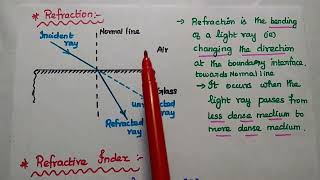 * Refraction:-
Normal line
Incident
ray
Air
Glass
unrefracted
ray
Refracted
ray
→ Refraction is the bending
of a light ray (ie)
changing the direction
at the boundary interface.
towards Normal line
→ It occurs when the
light ray passes from
less dense medium to
more dense medium.
* Refractive Index:-